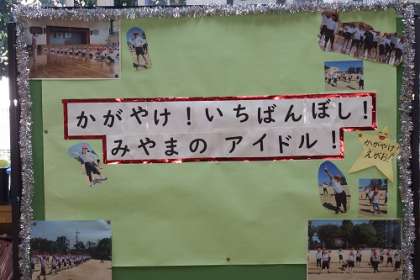 かがやけ！いちばんぼし！
みやまの アイドル！
かがやけ
えがお！